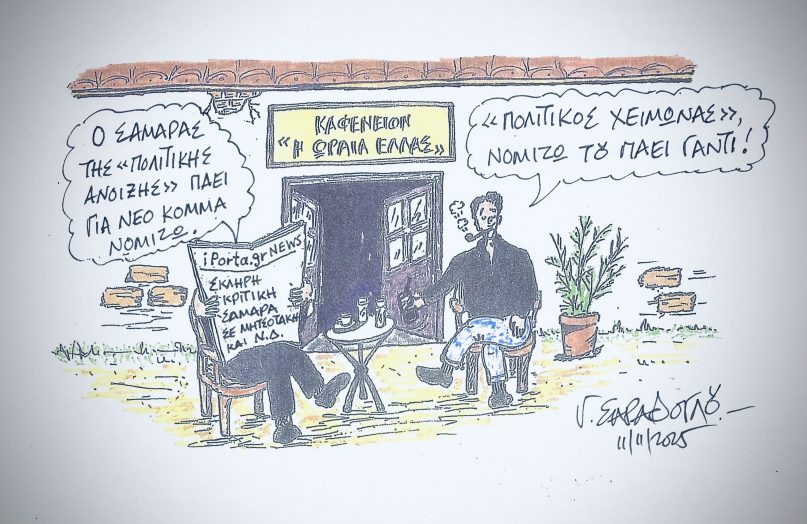 Ο ΣΑΜΑΡΑΣ
ΤΗΣ «ΠΟΛΙΤΙΚΗΣ
ΑΝΟΙΞΗΣ» ΠΑΕΙ
ΓΙΑ ΝΕΟ ΚΟΜΜΑ
ΝΟΜΙΖΩ.
ΚΑΦΕΝΕΙΟΝ
«Η ΩΡΑΙΑ ΕΛΛΑΣ»
«ΠΟΛΙΤΙΚΟΣ ΧΕΙΜΩΝΑΣ»,
ΝΟΜΙΖΩ ΤΟΥ ΠΑΕΙ ΓΑΝΤΙ!
iPorta.gr NEWS
ΣΚΛΗΡΗ
ΚΡΙΤΙΚΗ
ΣΑΜΑΡΑ
ΣΕ ΜΗΤΣΟΤΑΚΗ
ΚΑΙ Ν.Δ.
11/11/2025